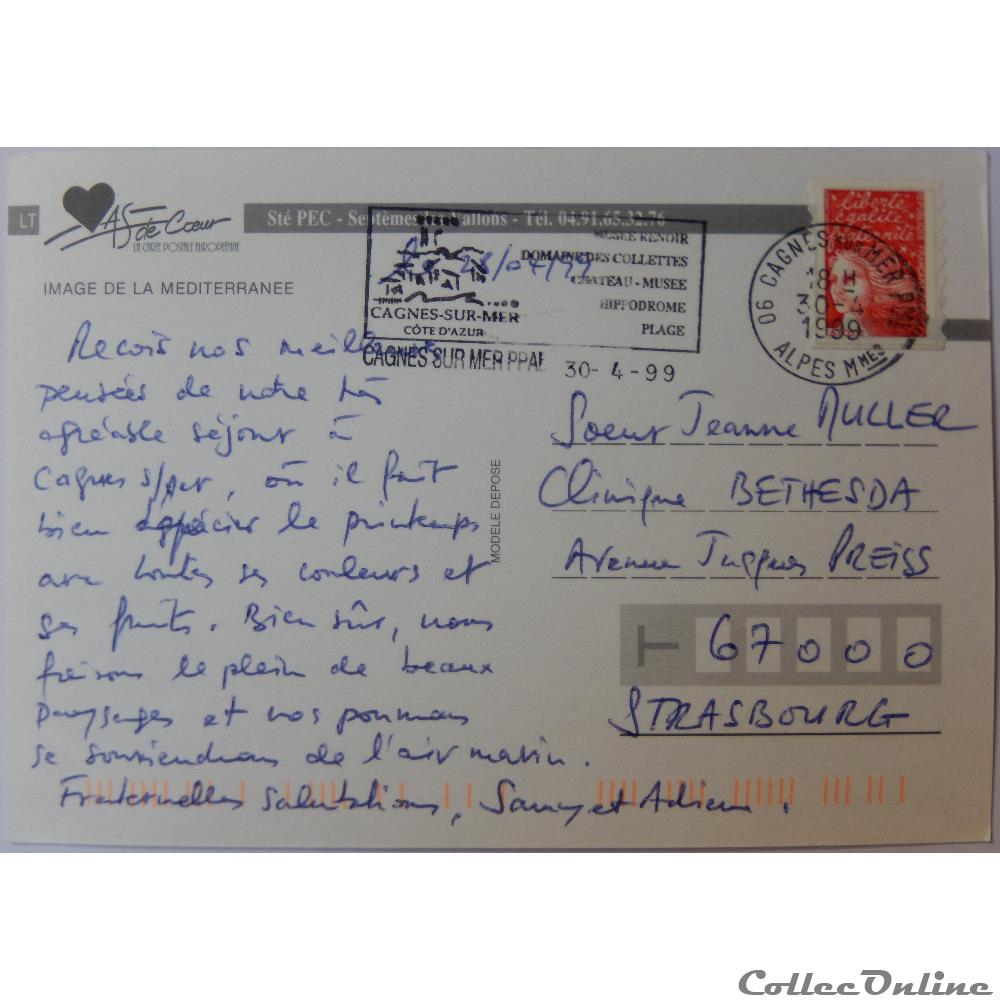 LT
AS de Cœur
LA CARTE POSTALE EUROPEENNE
Sté PEC - Septèmes Vallons - Tél. 04.91.65.32.76
IMAGE DE LA MEDITERRANEE
28/04/99
CAGNES-SUR-MER
CÔTE D'AZUR
MUSEE RENOIR
DOMAINE DES COLLETTES
CHATEAU - MUSEE
HIPPODROME
PLAGE
CAGNES SUR MER PPAL 30-4-99
liberté
égalité
fraternité
06 CAGNES SUR MER PPAL
18 H
30-4
1999
ALPES MMES
Recois nos meilleures
pensées de notre très
agréable séjour à
Cagnes s/mer, où il fait
bien apprécier le printemps
avec toutes ses couleurs et
ses fruits. Bien sûr, nous
faisons le plein de beaux
paysages et nos poumons
se souviendront de l'air marin.
Fraternelles salutations, Samy et
MODELE DEPOSE
Soeur Jeanne MULLER
Clinique BETHESDA
Avenue Jacques PREISS
67000
STRASBOURG
CollecOnline